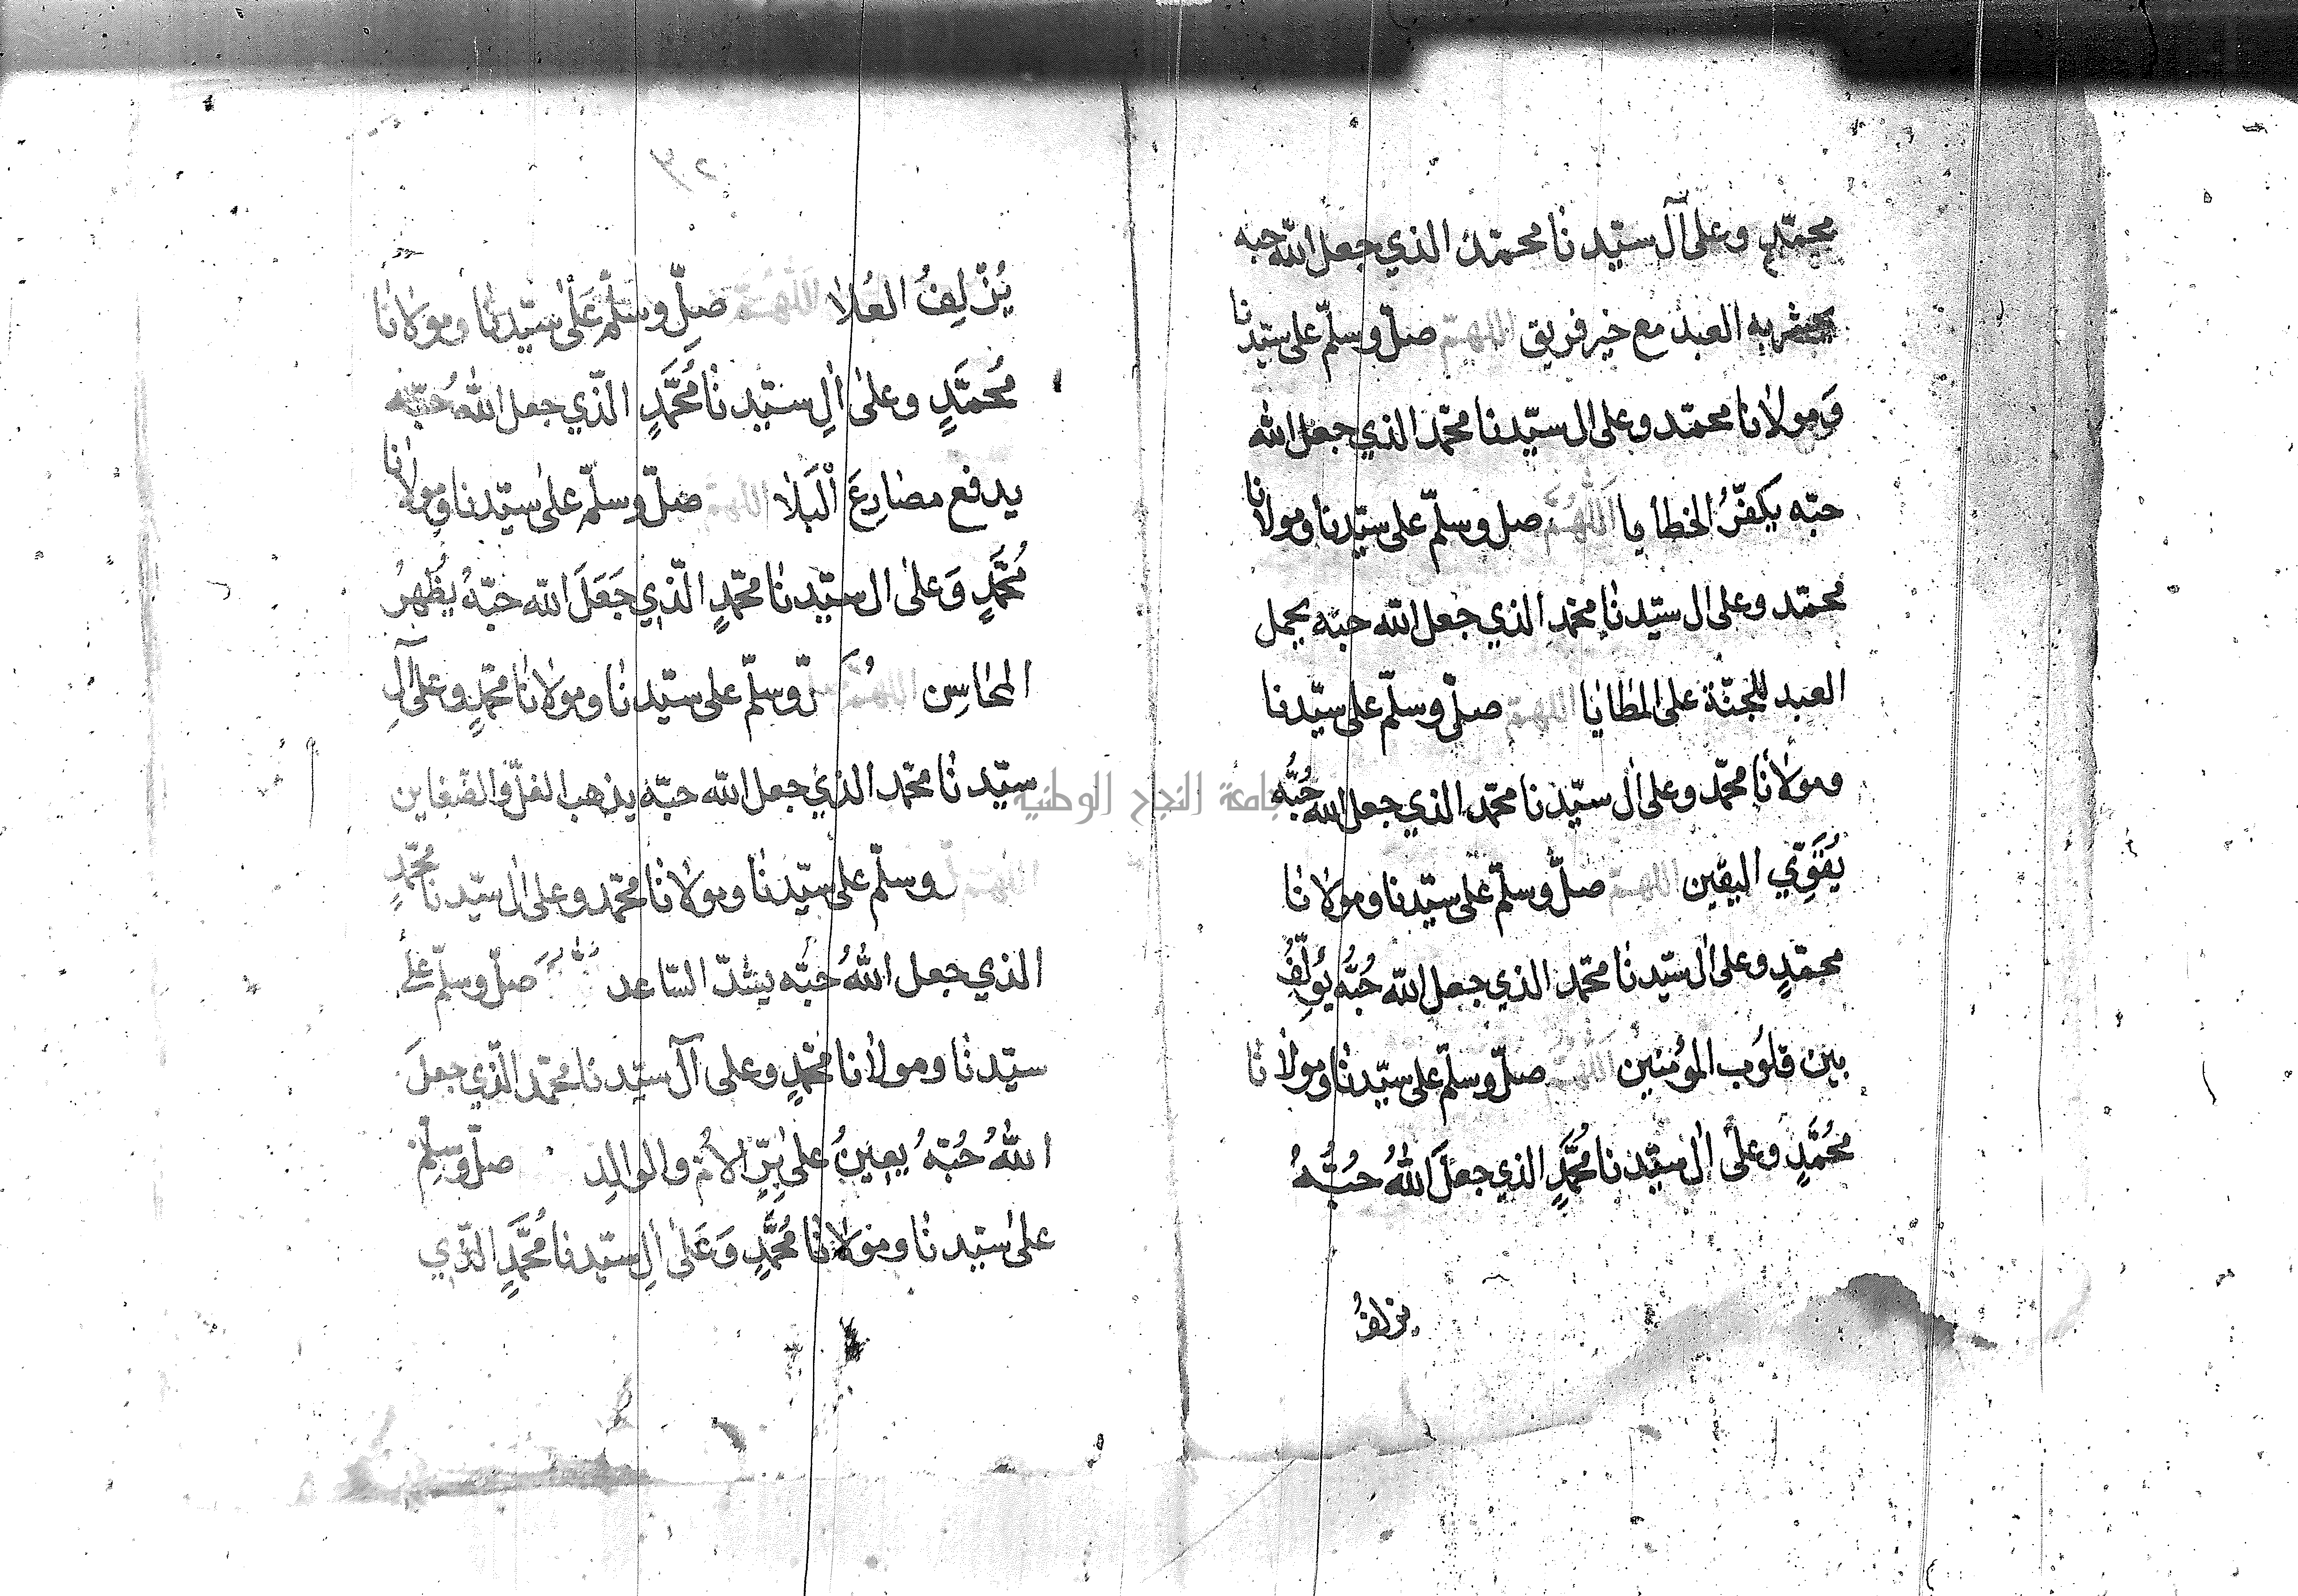 محمّدٍ وعلى آل سيّدنا محمّد الذي جعل الله حبه
يحشر به العبد مع خير فريق اللهمّ صلّ وسلّم على سيّدنا
وَمولانا محمّد وعلى ال سيّدنا محمّد الذي جعل الله
حبّه يكفّرُ الخطايا اَللّهُمَّ صل وسلّم على سيّدنا ومولانا
محمّد وعلى ال سيّدنا محمّد الذي جعل الله حبّه يحمل
العبد للجنّة على المطايا اللهمّ صلّ وسلّم على سيّدنا
ومولانا محمّد وعلى ال سيّدنا محمّد الذي جعل الله حُبُّه
يُقَوِّي اليقين اللهمّ صلّ وسلّم على سيّدنا ومولانا
محمّدٍ وعلى ال سيّدنا محمّد الذي جعل الله حُبُّه يُؤلِّفُ
بين قلوُب المؤمنين اَللّهُمَّ صلّ وسلّم على سيّدنا ومولانا
محُمَّدٍ وعلى ال سيّدنا مُحَمَّدٍ الذي جعلَ اللهُ حُبُّهُ
يزلفُ
يُزْلِفُ العُلا اَللّهُمَّ صلِّ وسَلّمْ عَلىٰ سيّدنا ومولانا
مُحمَّدٍ وعلىٰ الِ سيّدنا مُحَمَّدٍ الّذي جعل اللهُ حُبّه
يدفع مصارِعَ اْلبَلا اللهمّ صلّ وسلّم علىٰ سيّدنا ومولانا
مُحَمَّدٍ وَعلىٰ ال سيّدنا محمّدٍ الّذي جَعَلَ الله حبّهُ يُظهِرُ
المحاسِن اللهُمَّ صلّ وسلّم على سيّدنا ومولانا محمّدٍ وعلى آلِ
سيّدنا محمّد الذي جعل الله حبّه يذهب الغلّ والضّغاين
اللهمّ صلّ وسلّم على سيّدنا ومولانا محمّد وعلى ال سيّدنا محمّدٍ
الذي جعل اللهُ حُبّه يشدّ السّاعد صلّ وسلّم على
سيّدنا ومولانا محمّدٍ وعلى آل سيّدنا محمّد الّذي جعلَ
اللهُ حُبّهُ يعينُ على بِرِّ الامُّ والوالدِ صلّ وسلّم
علىٰ سيّدنا ومولانا مُحمَّدٍ وَعَلىٰ الِ سيّدنا مُحَمَّدٍ الّذي
جامعة النجاح الوطنية